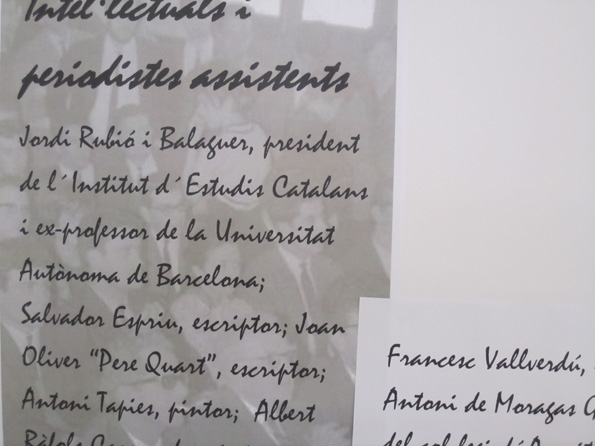 Intel·lectuals i
periodistes assistents
Jordi Rubió i Balaguer, president
de l´Institut d´Estudis Catalans
i ex-professor de la Universitat
Autònoma de Barcelona;
Salvador Espriu, escriptor; Joan
Oliver "Pere Quart", escriptor;
Antoni Tapies, pintor; Albert
Ràfols
Francesc Vallverdú,
Antoni de Moragas G
del col·legi d´